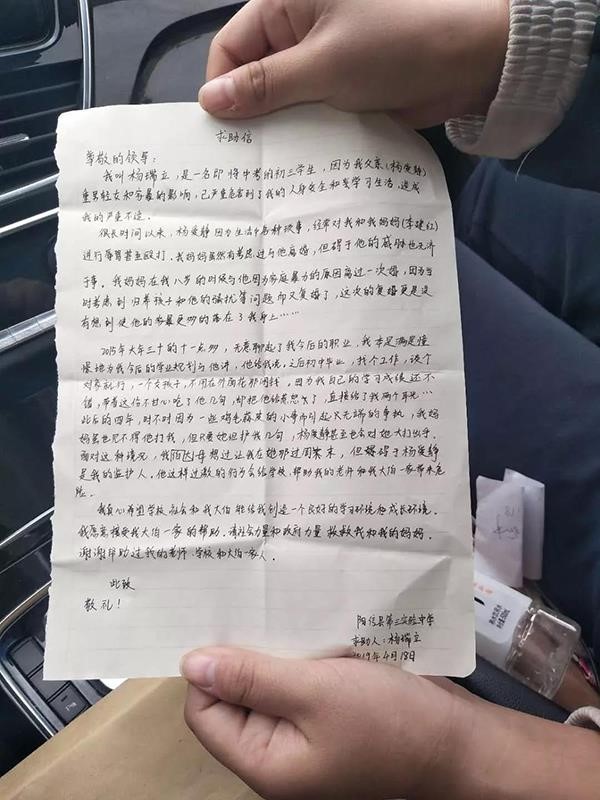 求助信
尊敬的领导：
我叫杨瑞立，是一名即将中考的初三学生，因为我父亲(杨爱静)
重男轻女和家暴的影响，已严重危害到了我的人身安全和及学习生活，造成
我的严重不适。
很长时间以来，杨爱静因为生活中各种琐事，经常对我和我妈妈(李建红)
进行辱骂甚至殴打。我妈妈虽然有考虑过与他离婚，但碍于他的威胁也无济
于事。我妈妈在我八岁的时候与他因为家庭暴力的原因离过一次婚，因为当
时考虑到归养孩子和他的骚扰等问题而又复婚了，这次的复婚更是没
有想到使他的家暴更多的落在了我身上……
2015年大年三十的十一点多，无意聊起了我今后的职业，我本是满是憧
憬地为我今后的学业规划与他讲，他给我说，之后初中毕业，找个工作，谈个
对象就行，一个女孩子，不用在外面花那闲钱，因为我自己的学习成绩还不
错，带着这份不甘心吃了他几句，却把他给惹怒了，直接给了我两个耳光……
此后的四年，时不时因为一些鸡毛蒜皮的小事而引起又无端的争执，我妈
妈虽也见不得他打我，但只要她袒护我几句，杨爱静甚至也会对她大打出手。
面对这种情况，我大伯大母想过让我在她那过周末，但碍于杨爱静
是我的监护人。他这样过激的行为会给学校、帮助我的老师和我大伯一家带来危
险。
我真心希望学校、社会和我大伯能给我创造一个良好的学习环境和成长环境。
我愿意接受我大伯一家的帮助。请社会力量和政府力量救救我和我的妈妈。
谢谢帮助过我的老师、学校和大伯一家人。
此致
敬礼！
阳信县第三实验中学
求助人：杨瑞立
2019年4月18日